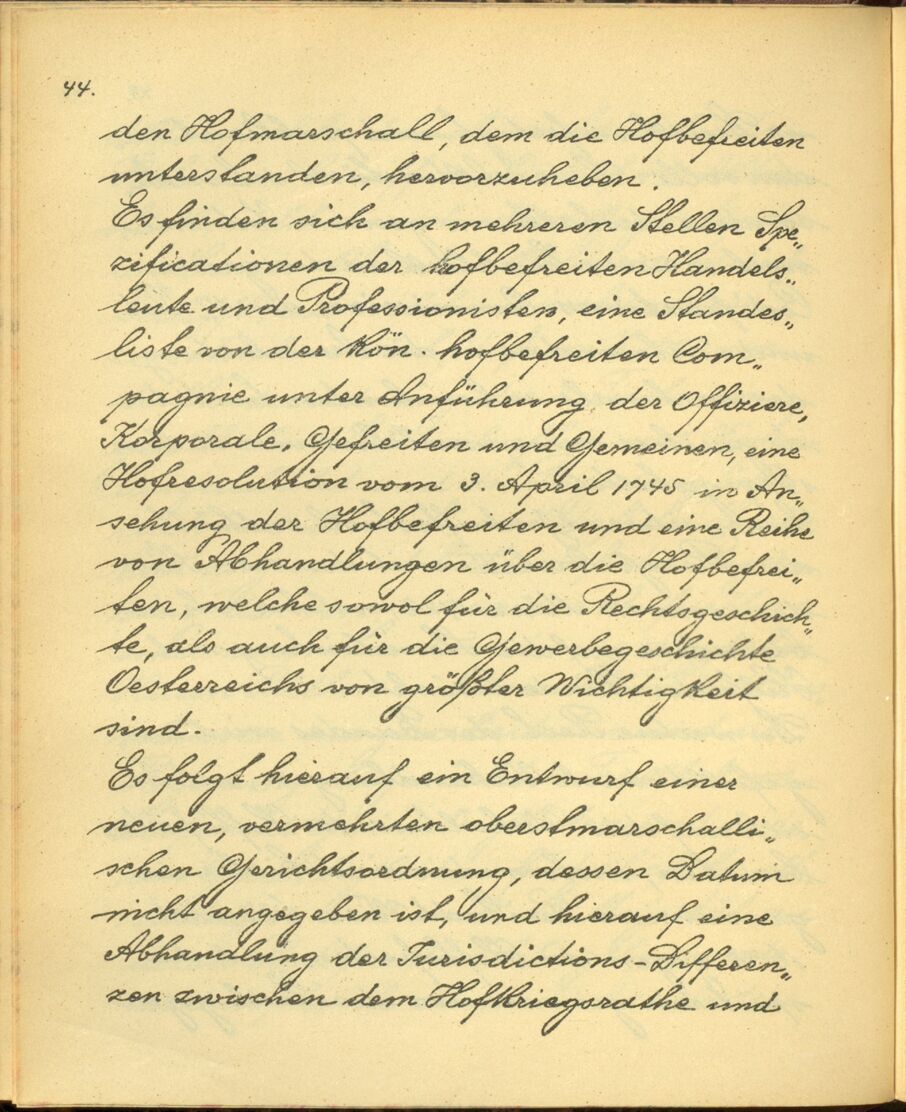 44.
den Hofmarschall, dem die Hofbefreiten
unterstanden, hervorzuheben.
Es finden sich an mehreren Stellen Spe„
zificationen der hofbefreiten Handels„
leute und Professionisten, eine Standes„
liste von der Kön. hofbefreiten Com„
pagnie unter Anführung der Offiziere,
Korporale, Gefreiten und Gemeinen, eine
Hofresolution vom 3. April 1745 in An„
sehung der Hofbefreiten und eine Reihe
von Abhandlungen über die Hofbefrei„
ten, welche sowol für die Rechtsgeschich„
te, als auch für die Gewerbegeschichte
Oesterreichs von größter Wichtigkeit
sind.
Es folgt hierauf ein Entwurf einer
neuen, vermehrten oberstmarschalli„
schen Gerichtsordnung, dessen Datum
nicht angegeben ist, und hierauf eine
Abhandlung der Jurisdictions-Differen„
zen zwischen dem Hofkriegsrathe und